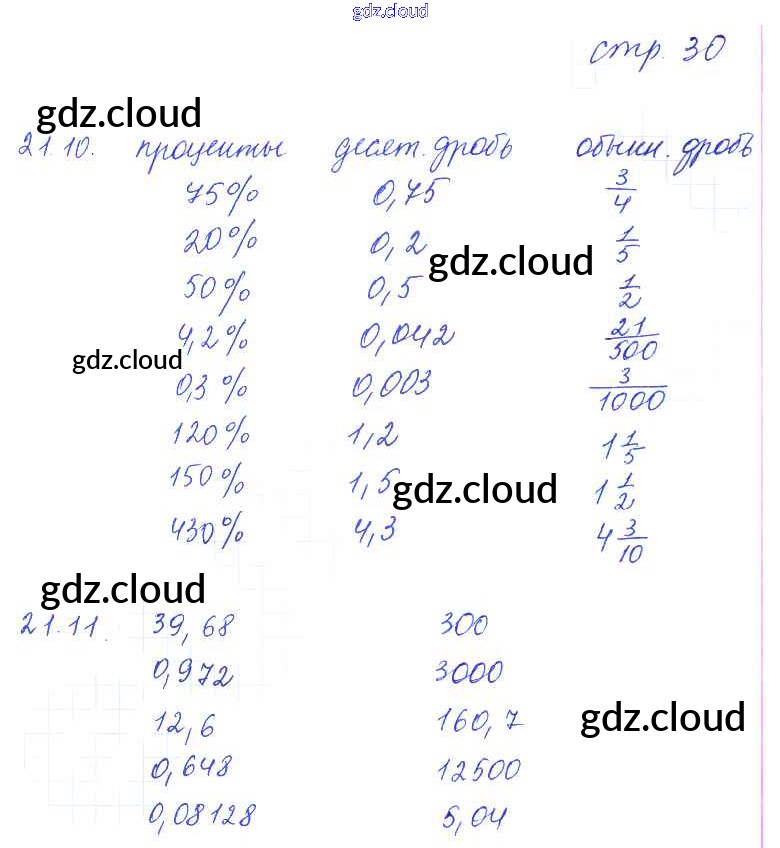 gdz.cloud
стр. 30
gdz.cloud
21.10. проценты десят. дробь обыкн. дробь
75% 0,75 3/4
20% 0,2 1/5
gdz.cloud
50% 0,5 1/2
4,2% 0,042 21/500
gdz.cloud
0,3% 0,003 3/1000
120% 1,2 1 1/5
150% 1,5 1 1/2
gdz.cloud
430% 4,3 4 3/10
gdz.cloud
21.11. 39,68 300
0,972 3000
12,6 160,7
gdz.cloud
0,648 12500
0,08128 5,04